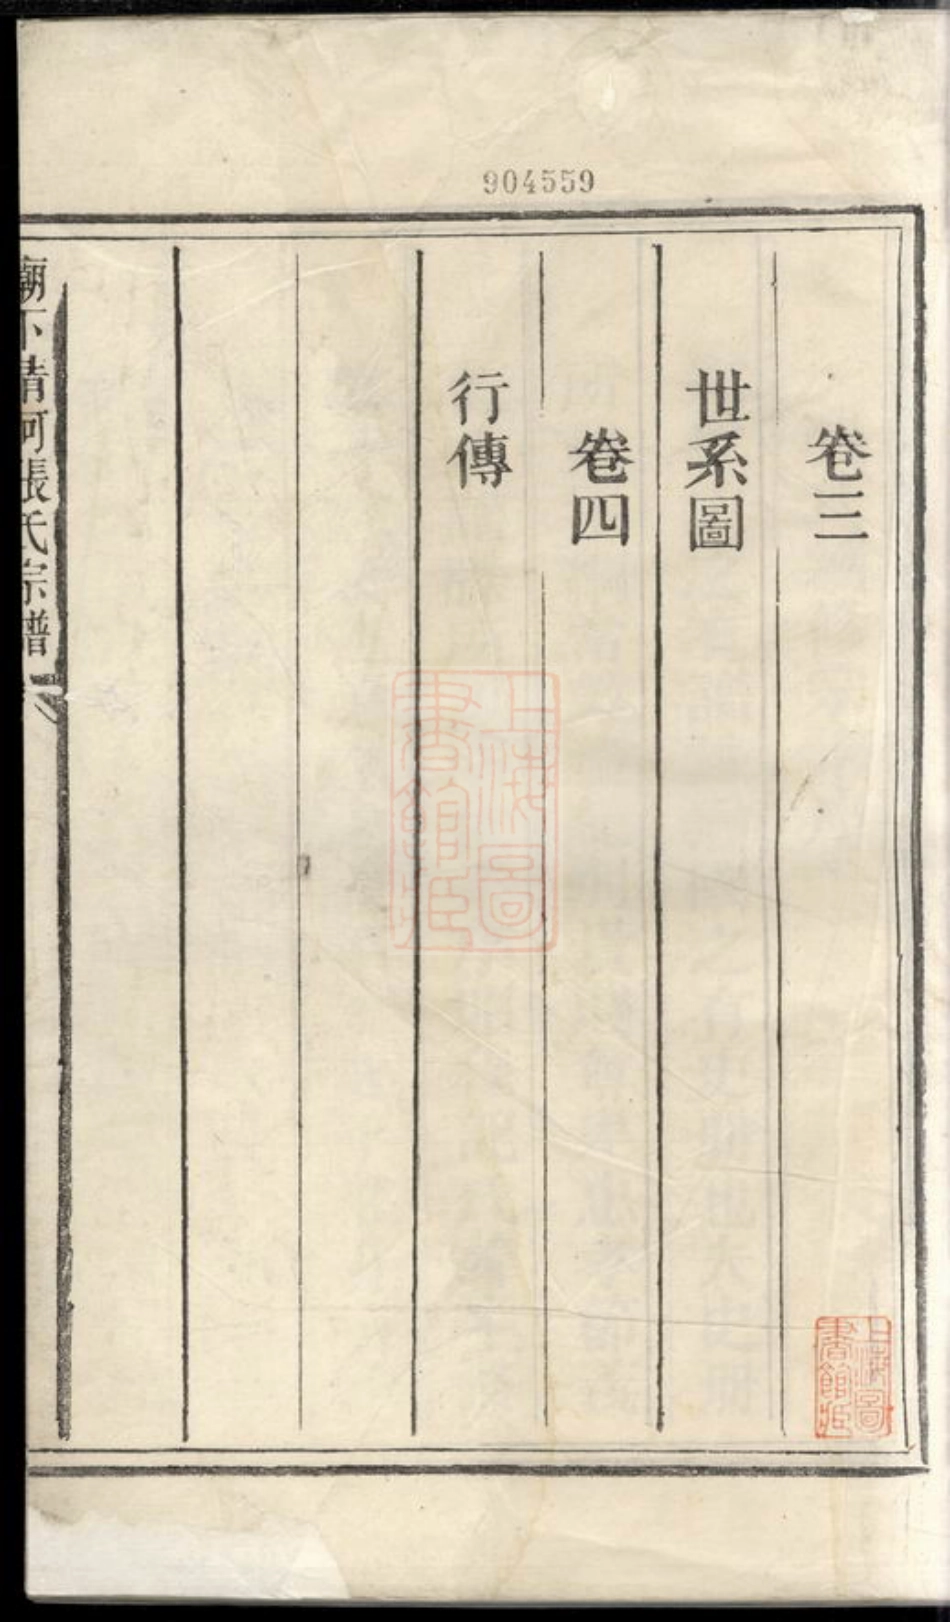 904559
卷三
世系圖
卷四
行傳
廟下清河張氏宗譜
上海圖書館藏
上海圖書館藏